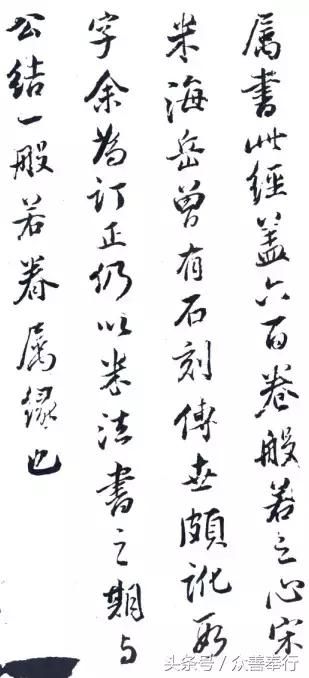 属書此經盖六百卷般若之心宋
米海岳曾有石刻傳世頗訛數
字余為訂正仍以米法書之期与
公结一般若眷属缘也
头条号／众善奉行